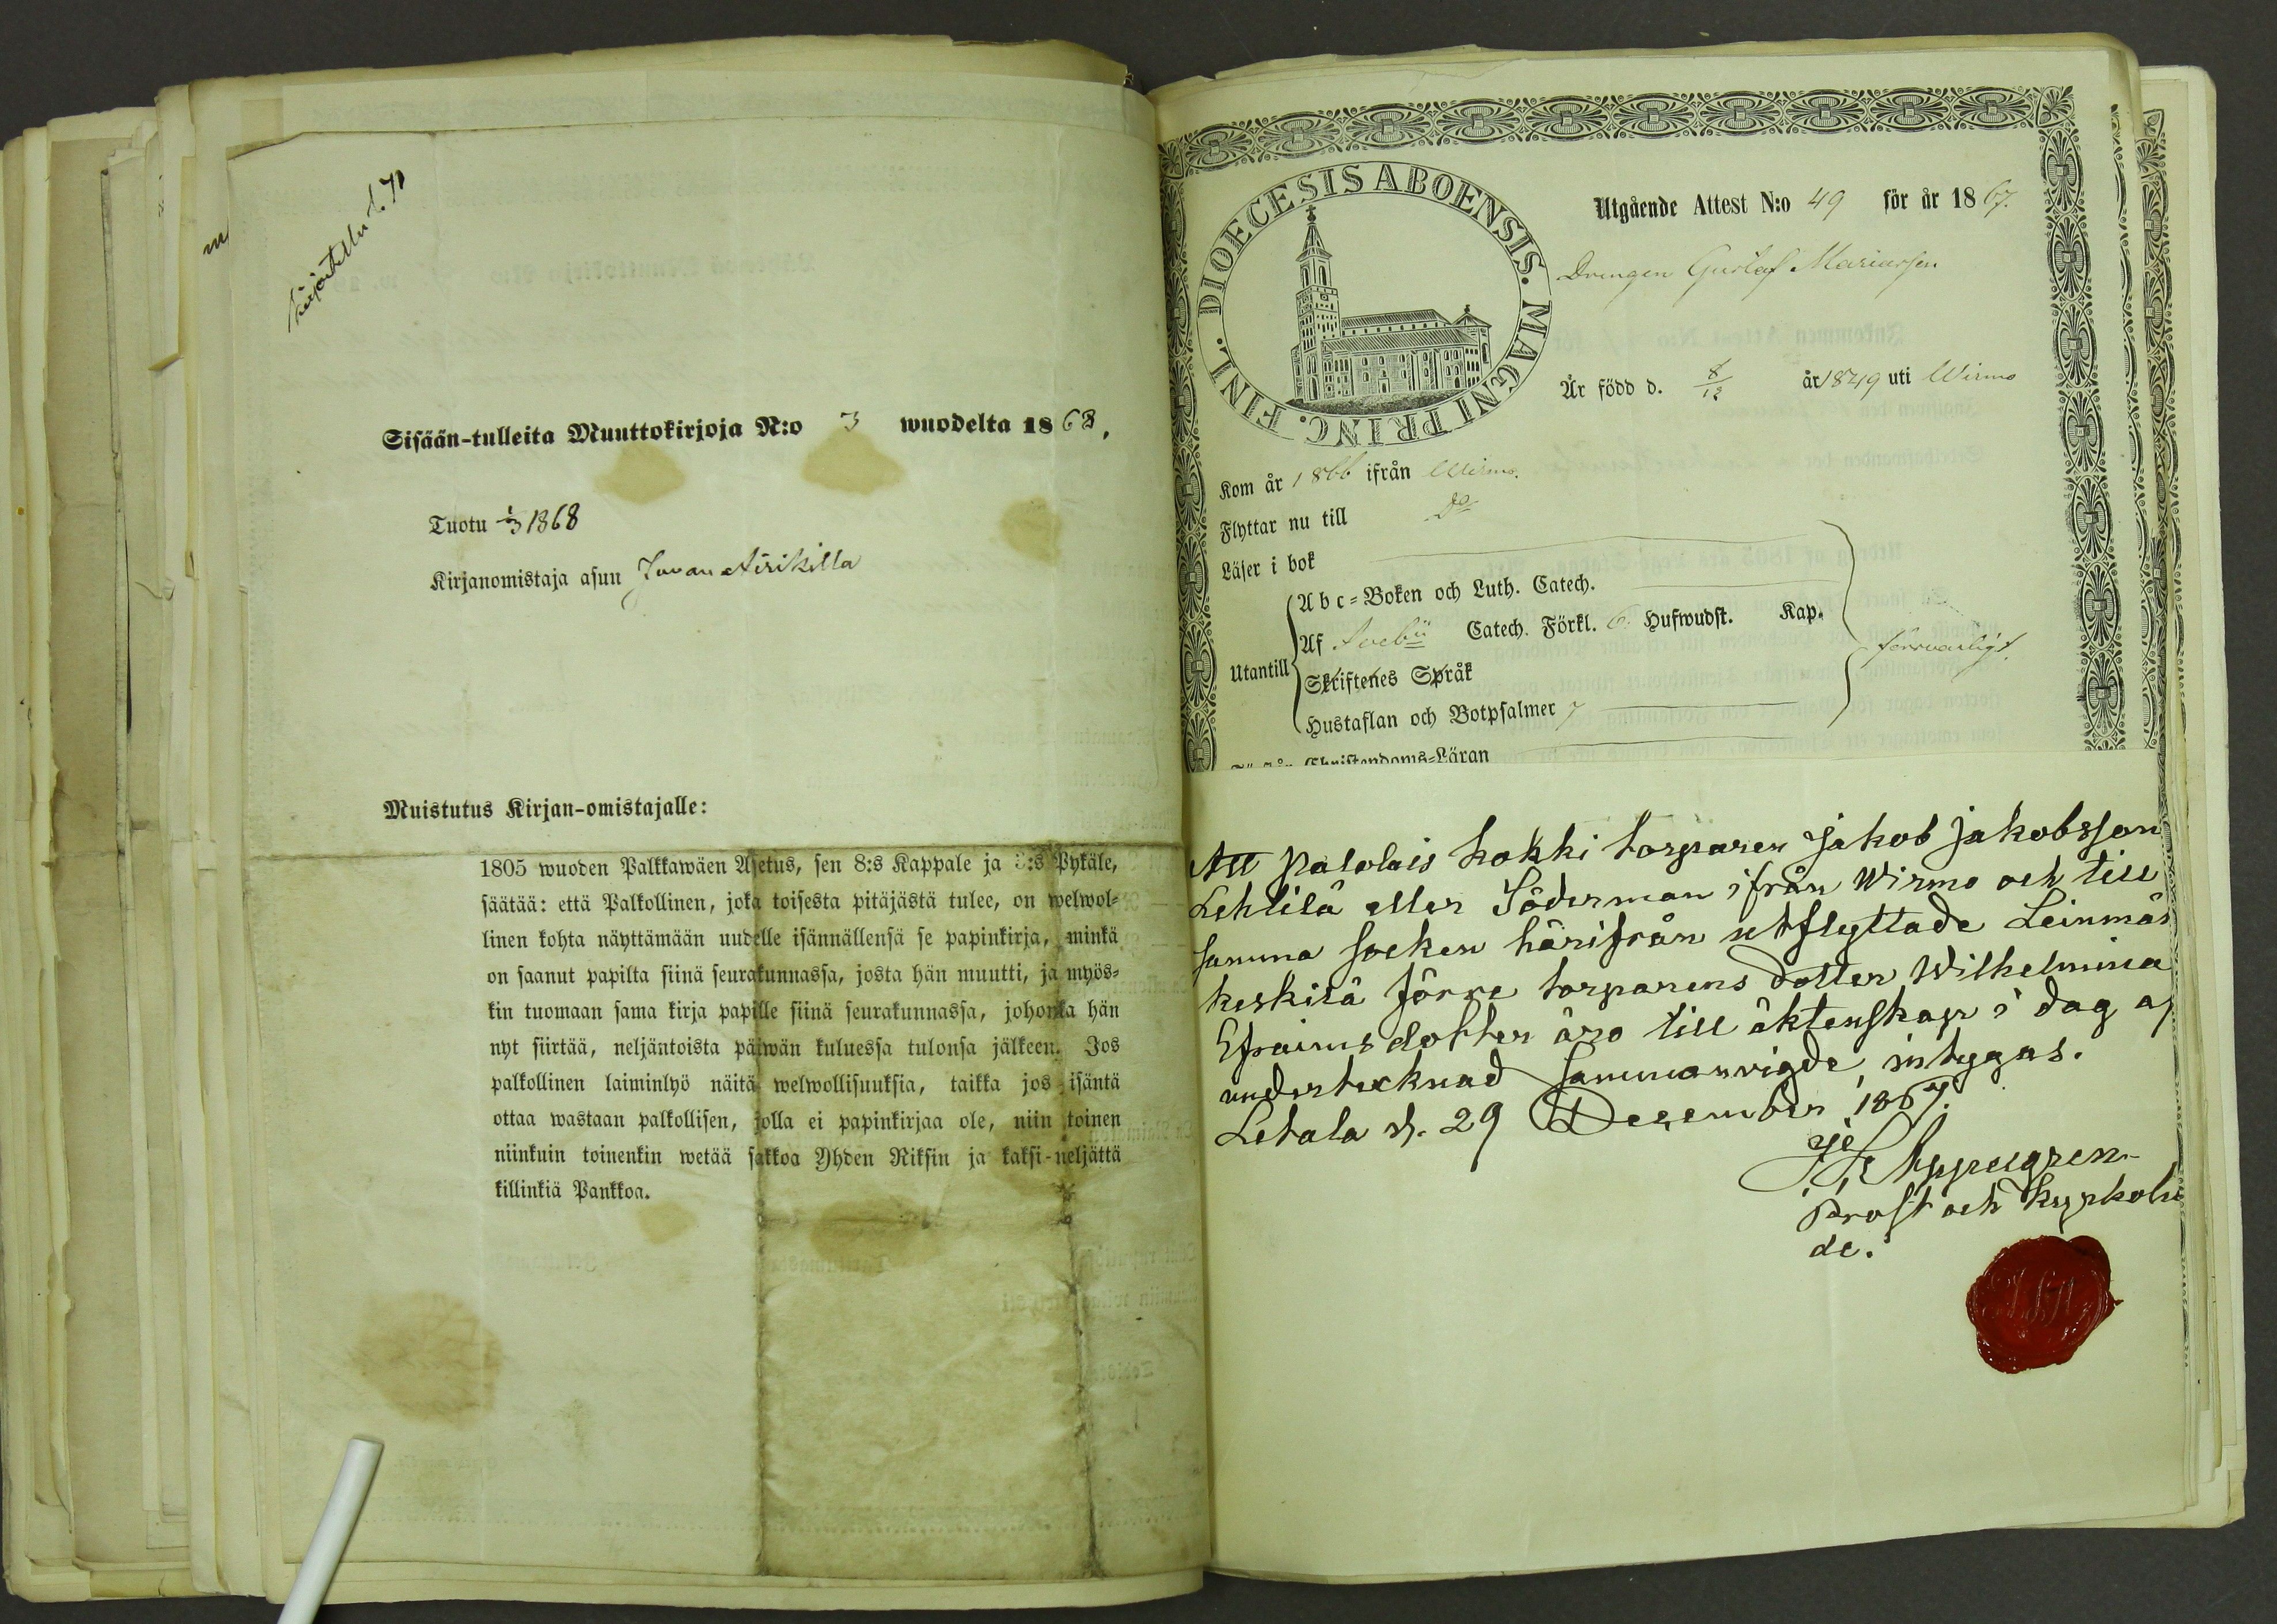 kirjoitettu
m
Sisään-tulleita Muuttokirjoja N:o 3 wuodelta 1868,
Tuotu 1/3 1868
Kirjanomistaja asun Juvan Äirikilla
Muistutus Kirjan-omistajalle:
1805 wuoden Palkkawäen Asetus, sen 8:s Kappale ja 3:s Pykäle,
säätää: että Palkollinen, joka toisesta pitäjästä tulee, on welwol-
linen kohta näyttämään uudelle isännällensä se papinkirja, minkä
on saanut papilta siinä seurakunnassa, josta hän muutti, ja myös-
kin tuomaan sama kirja papille siinä seurakunnassa, johonka hän
nyt siirtää, neljäntoista päiwän kuluessa tulonsa jälkeen. Jos
palkollinen laiminlyö näitä welwollisuuksia, taikka jos isäntä
ottaa wastaan palkollisen, jolla ei papinkirjaa ole, niin toinen
niinkuin toinenkin wetää sakkoa Yhden Riksin ja kaksi-neljättä
killinkiä Pankkoa.
DIOECESIS ABOENSIS. MAGNI PRINC. FINL.
Utgående Attest N:o 49 för år 1867.
Drengen Gustaf Mariasson
Är född d. 8/12 år 1849 uti Wirmo
Kom år 1866 ifrån Wirmo.
Flyttar nu till Do
Läser i bok
Utantill
Abc-Boken och Luth. Catech.
Af Svebii Catech. Förkl. 6 Hufwudst. Kap.
Skriftenes Språk
Hustaflan och Botpsalmer 7
försvarligt.
Christendoms-Läran
Att Palolais kokki torparen Jakob Jakobsson
Lehtilä eller Söderman ifrån Wirmo och till
samma socken härifrån utflyttade Leinmäs
keskilä förre torparens dotter Wilhelmina
Efraimsdotter äro till äktenskap i dag af
undertecknad sammanvigde, intygas.
Letala d. 29 December 1867.
Prost och Kyrkoher
de.